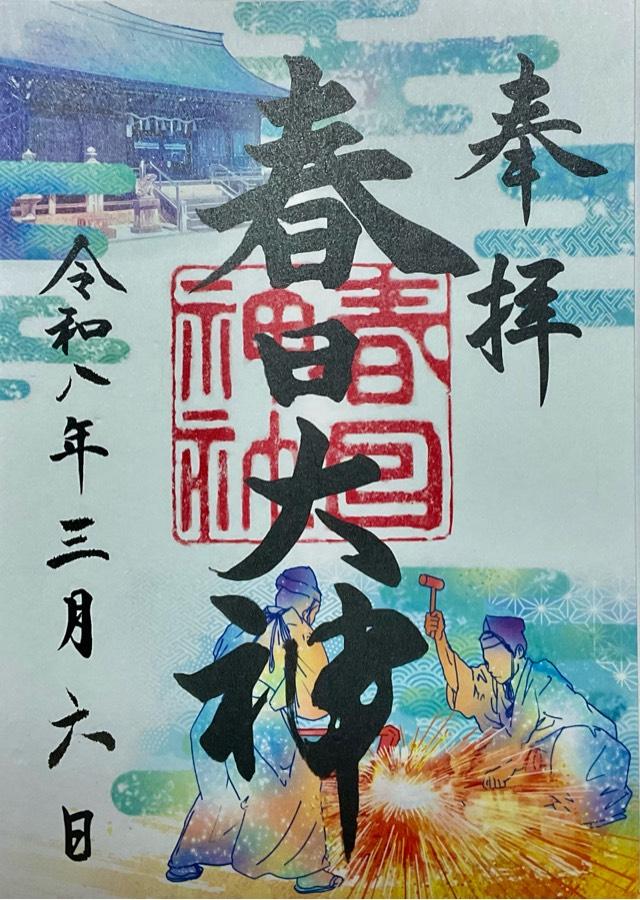 奉拝
春日大神
春日神社
令和八年三月六日